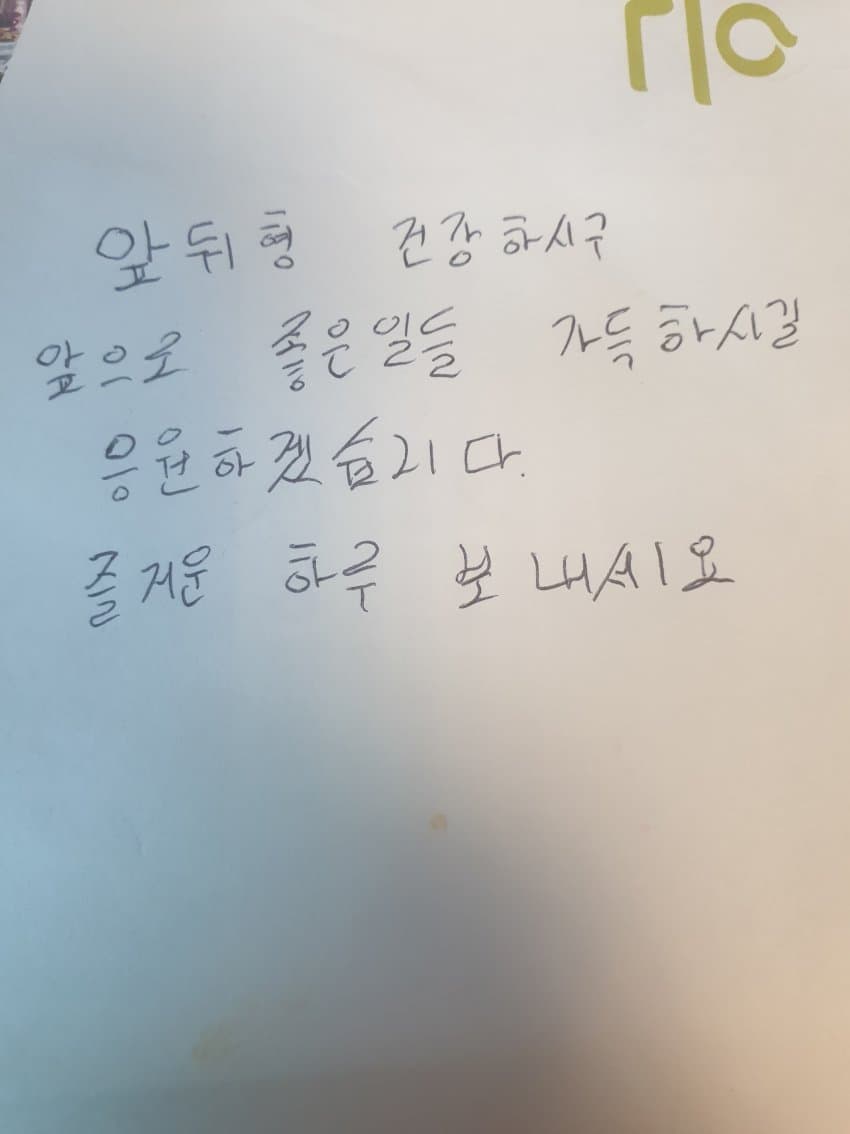 앞뒤형 건강하시구
앞으로 좋은일들 가득하시길
응원하겠습니다.
즐거운 하루 보내세요